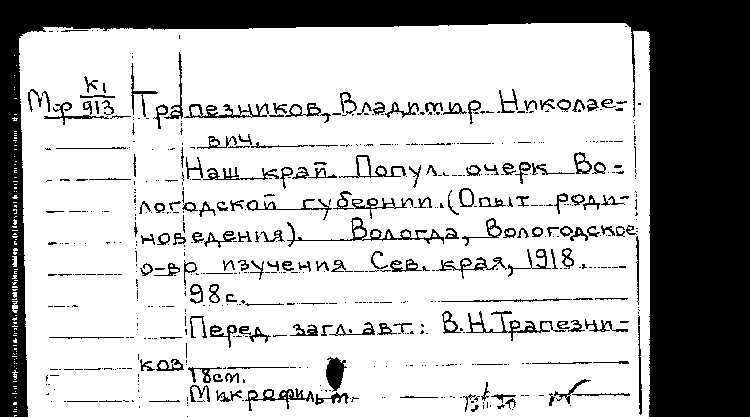 Мф К1/913 Трапезников, Владимир Николае=
вич.
Наш край. Попул. очерк Во=
логодской губернии. (Опыт роди-
новедения). Вологда, Вологодское
о-во изучения Сев. края, 1918.
98с.
Перед загл. авт.: В.Н.Трапезни=
ков
18см.
Микрофильм.